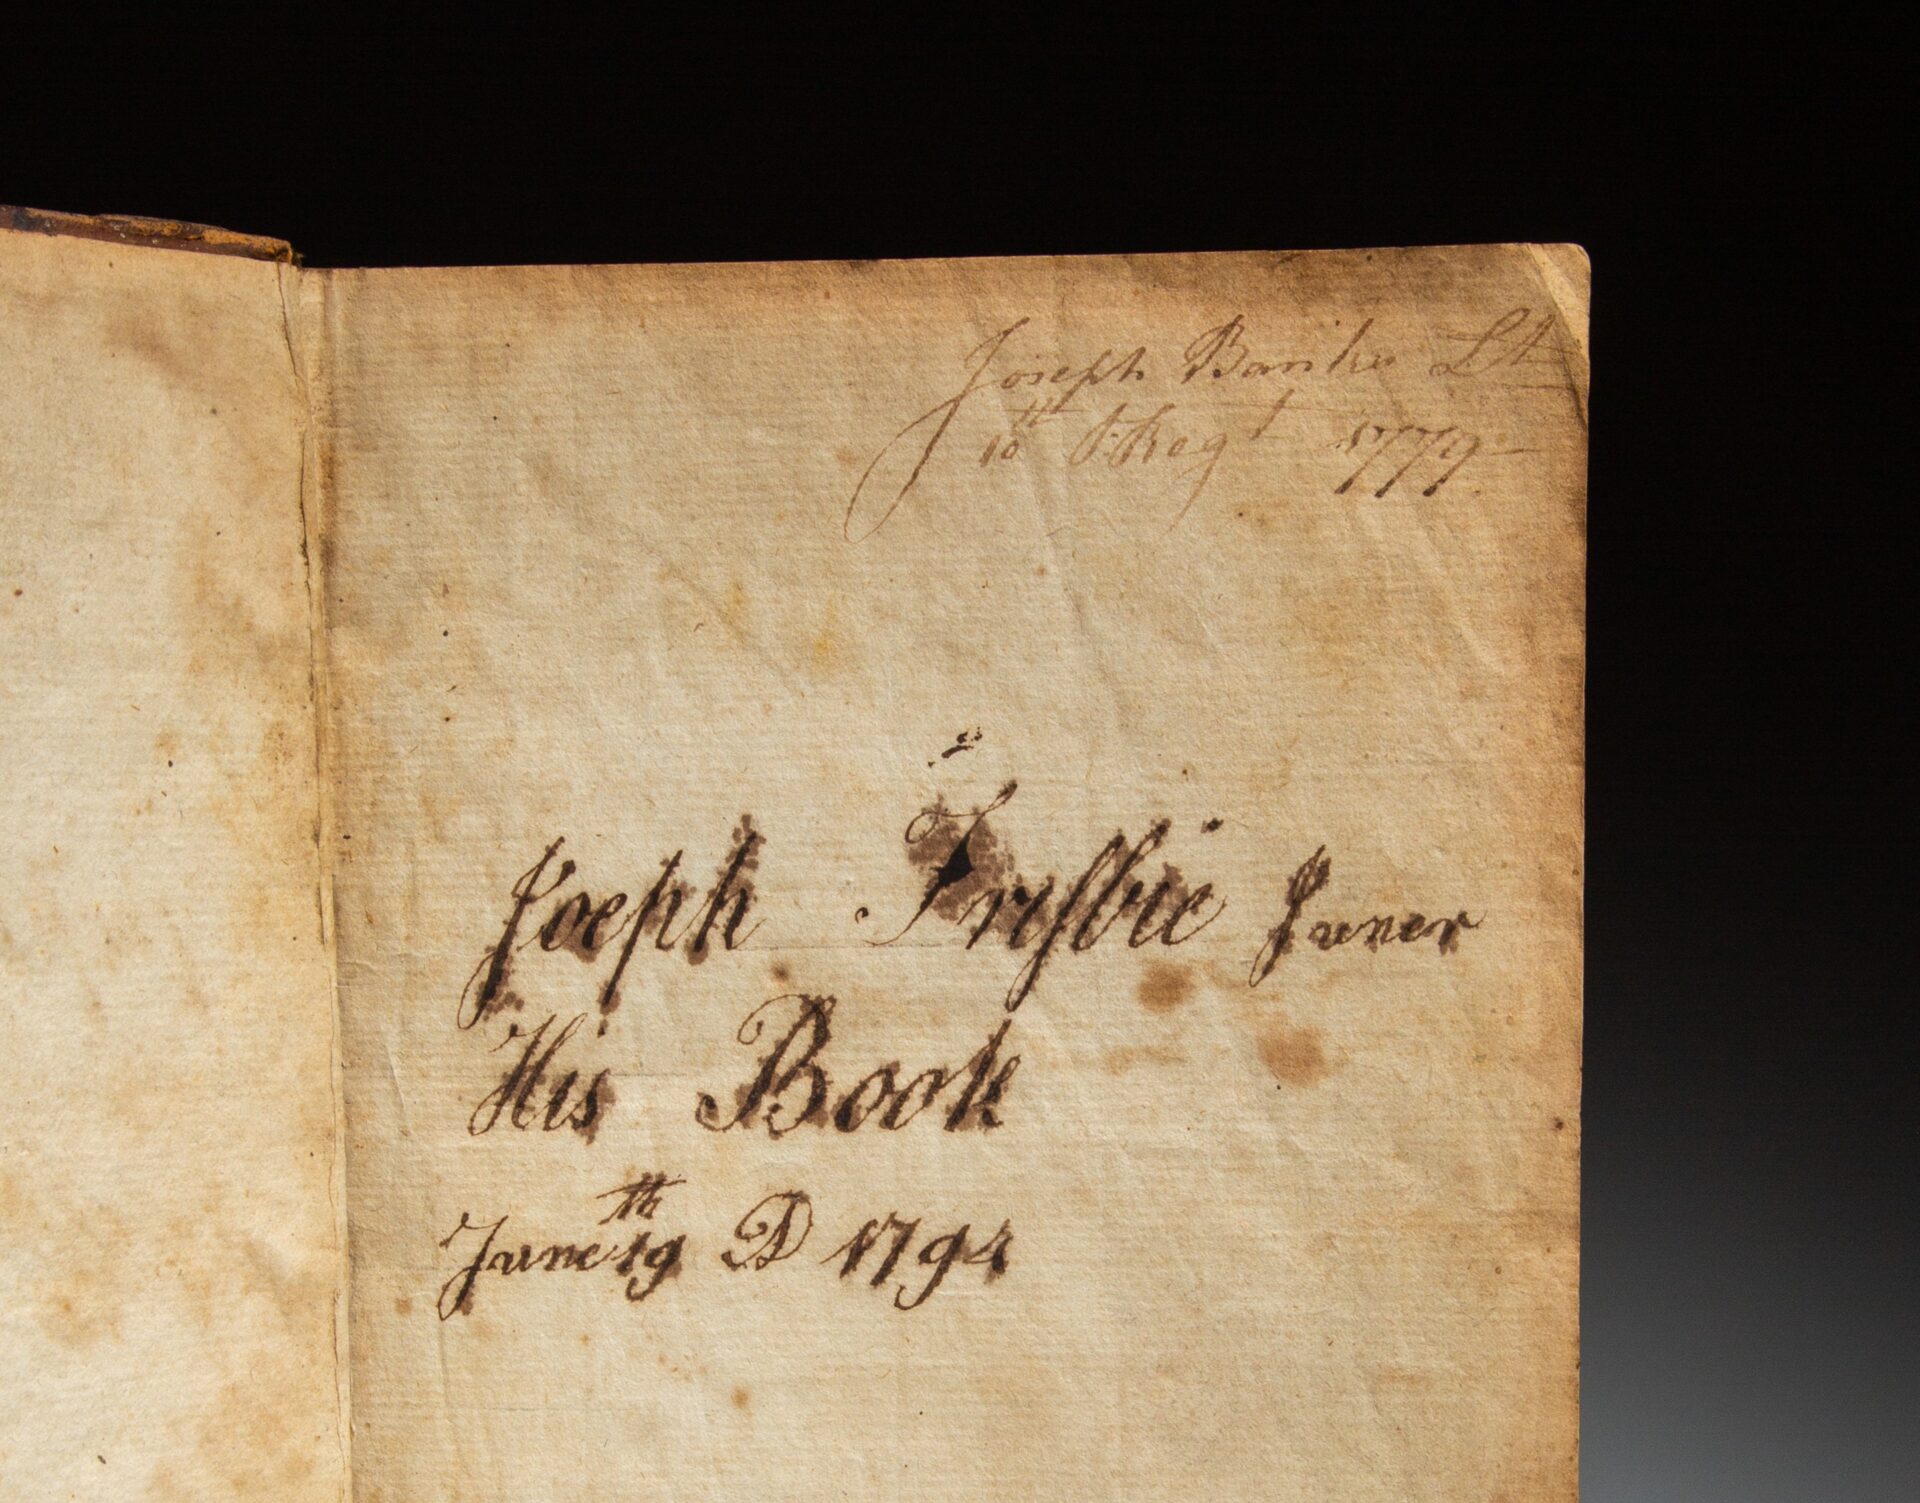 Joseph Banks Lt
10th P. Regt 1779
Joeph Friſbie Juner
His Book
June 19th AD 1794